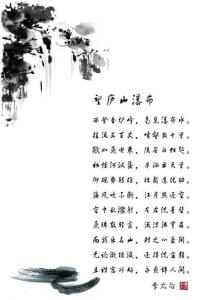 望庐山瀑布
西登香炉峰，南见瀑布水。
挂流三百丈，喷壑数十里。
欻如飞电来，隐若白虹起。
初惊河汉落，半洒云天里。
仰观势转雄，壮哉造化功。
海风吹不断，江月照还空。
空中乱潈射，左右洗青壁。
飞珠散轻霞，流沫沸穹石。
而我乐名山，对之心益闲。
无论漱琼液，还得洗尘颜。
且谐宿所好，永愿辞人间。
李太白